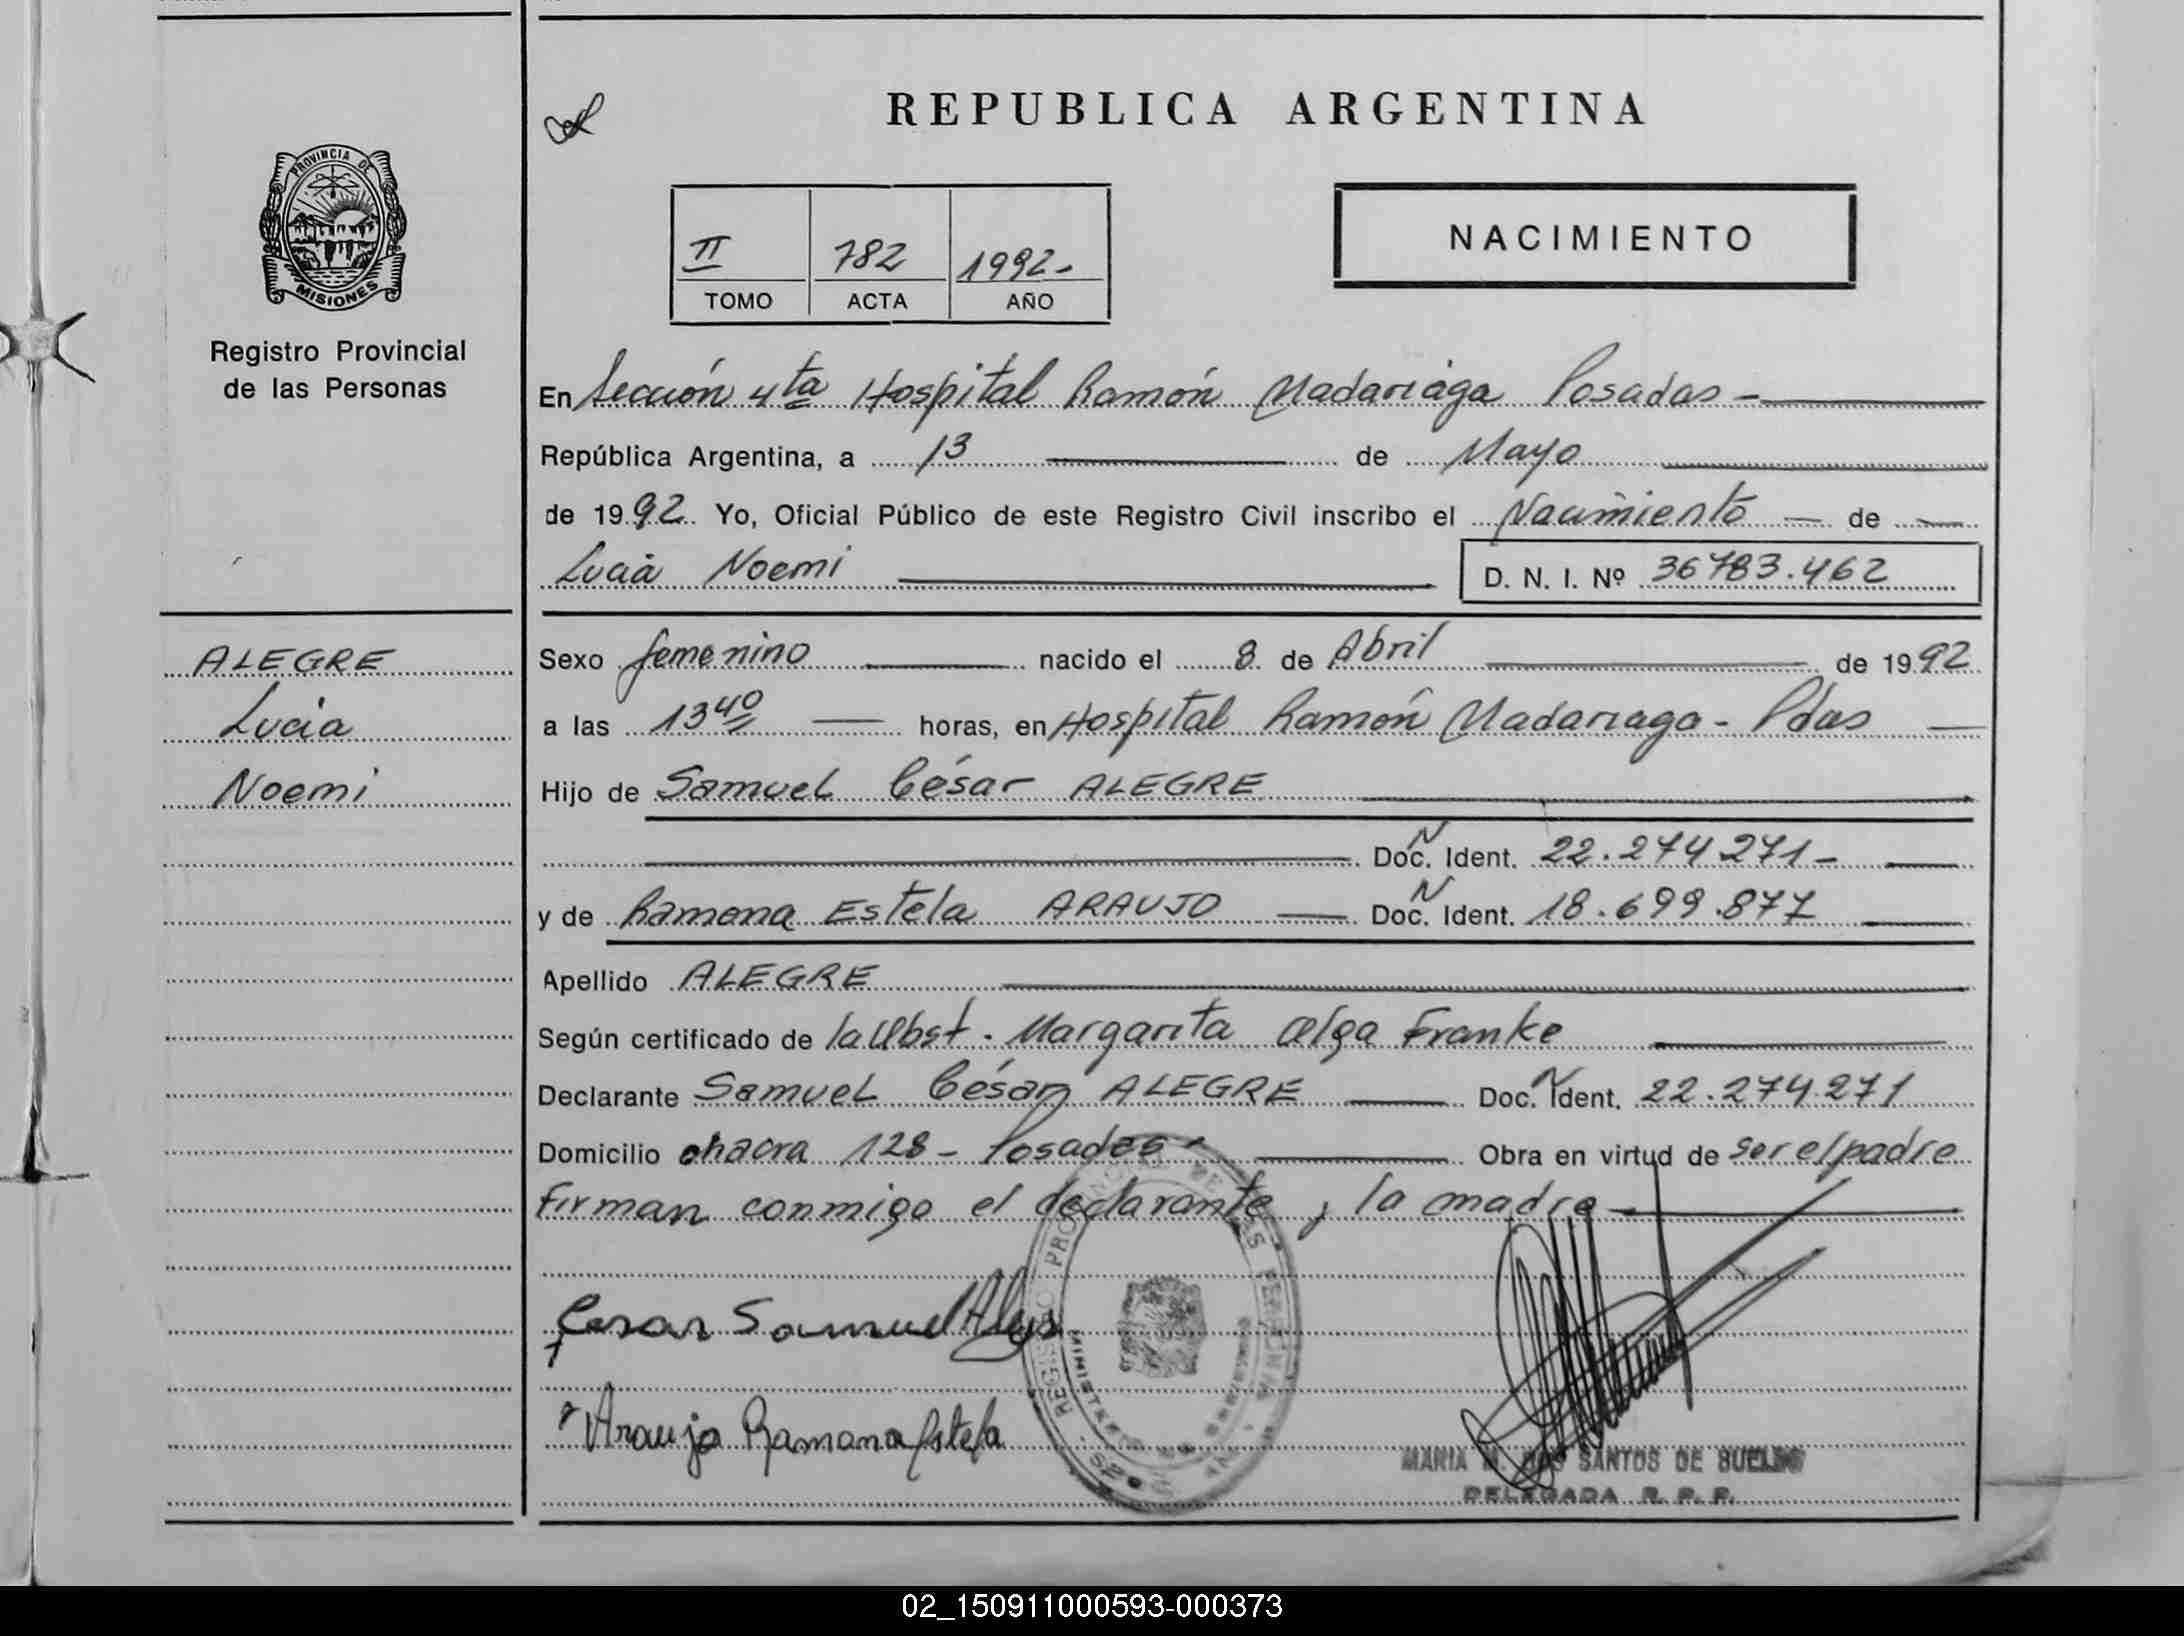 REPUBLICA ARGENTINA
PROVINCIA DE
MISIONES
Registro Provincial
de las Personas
II 782 1992-
TOMO ACTA AÑO
NACIMIENTO
En Sección 4ta Hospital Ramón Madariaga Posadas -
República Argentina, a 13 de Mayo
de 1992. Yo, Oficial Público de este Registro Civil inscribo el Nacimiento de
Lucia Noemi D. N. I. Nº 36783.462
ALEGRE
Lucia
Noemi
Sexo femenino nacido el 8 de Abril de 1992
a las 13 40 horas, en Hospital Ramón Madariaga - Pdas
Hijo de Samuel César ALEGRE
N
Doc. Ident. 22.274 271-
N
y de Ramona Estela ARAUJO Doc. Ident. 18.699.877
Apellido ALEGRE
Según certificado de la Obst. Margarita Olga Franke
N
Declarante Samuel César ALEGRE Doc. Ident. 22.274.271
Domicilio chacra 128 - Posadas - Obra en virtud de ser el padre
Firman conmigo el declarante y la madre
Cesar Samuel
Araujo Ramona Estela
REGISTRO PROVINCIAL DE LAS PERSONAS
MINISTERIO DE GOBIERNO
MARIA M. DOS SANTOS DE
DELEGADA R. P. P.
02_150911000593-000373